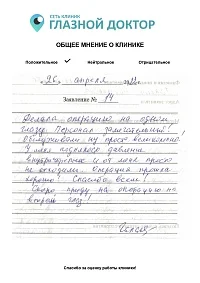 СЕТЬ КЛИНИК
ГЛАЗНОЙ ДОКТОР
ОБЩЕЕ МНЕНИЕ О КЛИНИКЕ
Положительное ✓ Нейтральное Отрицательное
"26" апреля
Заявление № 14
Делала операцию на одном
глазу. Персонал замечательный!
Обслуживали ну просто великолепно!
У меня поднялось давление
внутриглазное и от меня просто
не отходили. Операция прошла
хорошо! Спасибо всем!
Скоро приду на операцию на
второй глаз!
Спасибо за оценку работы клиники!